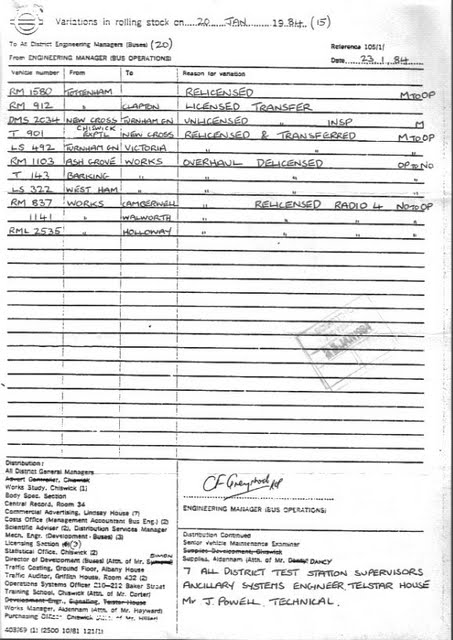 Variations in rolling stock on 20 JAN 1984 (15)
To All District Engineering Managers (Buses) (20)
Reference 105/1/
From ENGINEERING MANAGER (BUS OPERATIONS)
Date 23.1.84
Vehicle number From To Reason for variation
RM 1580 TOTTENHAM RELICENSED M TO OP
RM 912 " CLAPTON LICENSED TRANSFER
DMS 2034 NEW CROSS TURNHAM GN UNLICENSED " INSP M
T 901 CHISWICK EXPTL NEW CROSS RELICENSED & TRANSFERRED M TO OP
LS 492 TURNHAM GN VICTORIA " " "
RM 1103 ASH GROVE WORKS OVERHAUL DELICENSED OP TO NO
T 143 BARKING " " " "
LS 322 WEST HAM " " " "
RM 837 WORKS CAMBERWELL " RELICENSED RADIO 4 NO TO OP
1141 " WALWORTH " " " "
RML 2535 " HOLLOWAY " " " "
Distribution:
All District General Managers
Advert Controller, Chiswick
Works Study, Chiswick (1)
Body Spec. Section
Central Record, Room 34
Commercial Advertising, Lindsey House (7)
Costs Office (Management Accountant Bus Eng.) (2)
Scientific Adviser (2), Distribution Services Manager
Mech. Engr. (Development - Buses) (3)
Licensing Section
Statistical Office, Chiswick (2)
Director of Development (Buses) (Attn. of Mr.
Traffic Costing, Ground Floor, Albany House
Traffic Auditor, Griffith House, Room 432 (2)
Operations Systems Officer 210-212 Baker Street
Training School, Chiswick (Attn. of Mr. Corter)
Development Engr., Signalling, Telstar House
Works Manager, Aldenham (Attn. of Mr. Hayward)
Purchasing Officer Chiswick
ENGINEERING MANAGER (BUS OPERATIONS)
Distribution Continued
Senior Vehicle Maintenance Examiner
Supplies Development, Chiswick
Supplies, Aldenham (Attn. of Mr. DANCY
7 ALL DISTRICT TEST STATION SUPERVISORS
ANCILLARY SYSTEMS ENGINEER, TELSTAR HOUSE
Mr J. POWELL TECHNICAL.